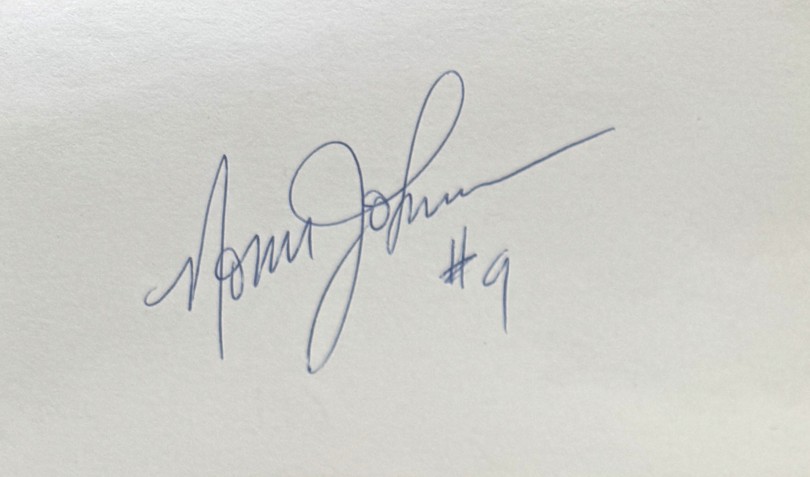 Norm Johnson
#9